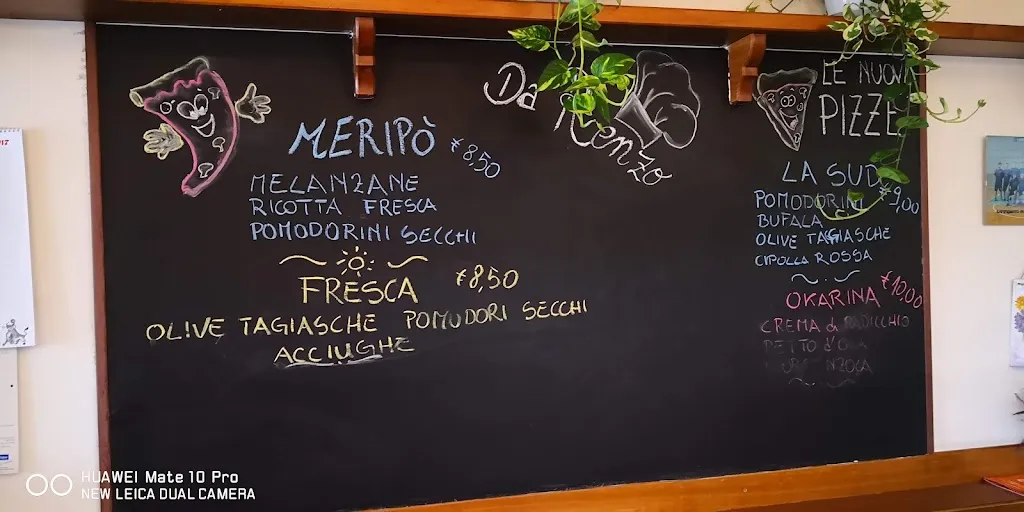 Da Renzo
MERIPÒ €8,50
MELANZANE
RICOTTA FRESCA
POMODORINI SECCHI
FRESCA €8,50
OLIVE TAGIASCHE POMODORI SECCHI
ACCIUGHE
LE NUOVE
PIZZE
LA SUD €9,00
POMODORINI
BUFALA
OLIVE TAGIASCHE
CIPOLLA ROSSA
OKARINA €10,00
CREMA di RADICCHIO
PETTO d'OCA
HUAWEI Mate 10 Pro
NEW LEICA DUAL CAMERA